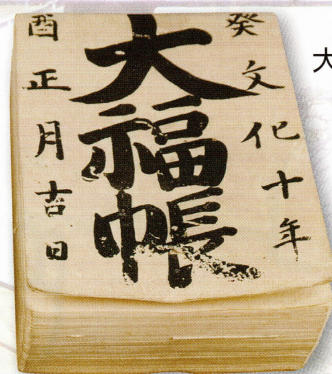 癸文化十年
大福帳
酉正月吉日
大